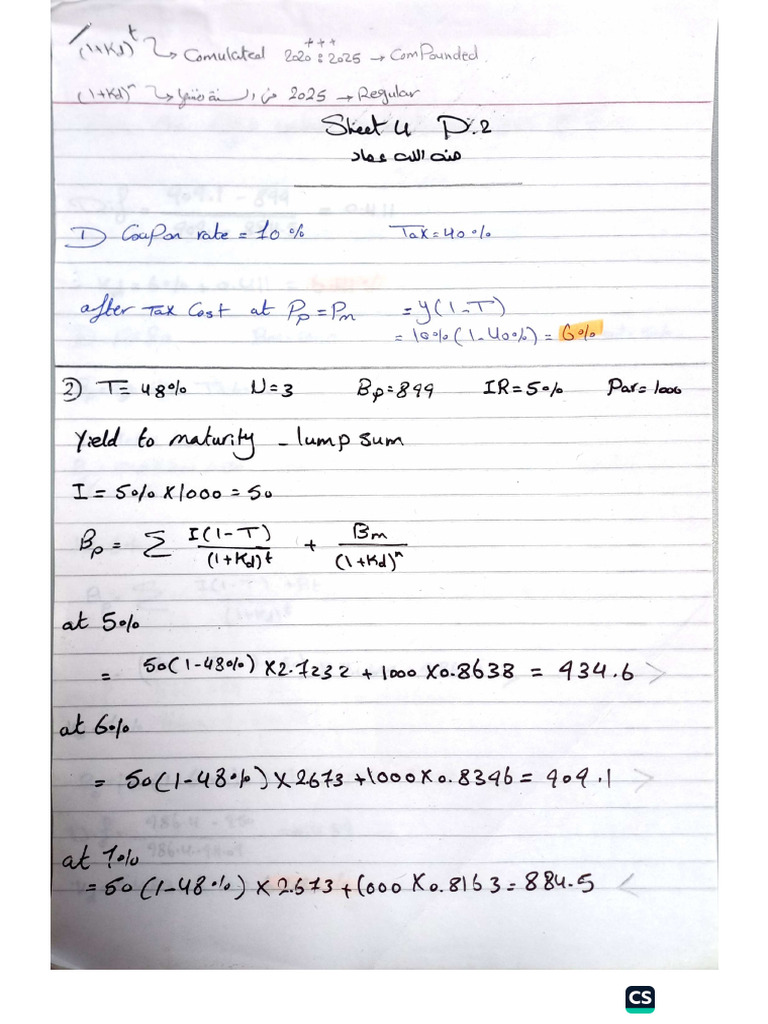 (1+Kd)^t ↳ Comulated 2020 : 2025 → ComPounded
(1+Kd)^n ↳ من السنة نفسها 2025 → Regular
Sheet 4 P.2
هبه الله عماد
1) CouPon rate = 10 % Tax = 40 %
after Tax Cost at Pp = Pm = y(1-T)
= 10%(1-40%) = 6%
2) T= 48% N=3 Bp=899 IR=5% Par=1000
Yield to maturity - lump sum
I = 5% X1000 = 50
Bp = Σ I(1-T)/(1+Kd)^t + Bm/(1+Kd)^n
at 5%
= 50(1-48%) X2.7232 + 1000 X0.8638 = 934.6 >
at 6%
= 50(1-48%)X2673 +1000X0.8396 = 909.1 >
at 7%
=50(1-48%) X2.673+1000 X0.8163=884.5 <
CS